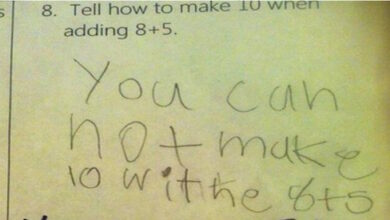 8. Tell how to make 10 when
adding 8+5.
You can
not make
10 withe 8+5